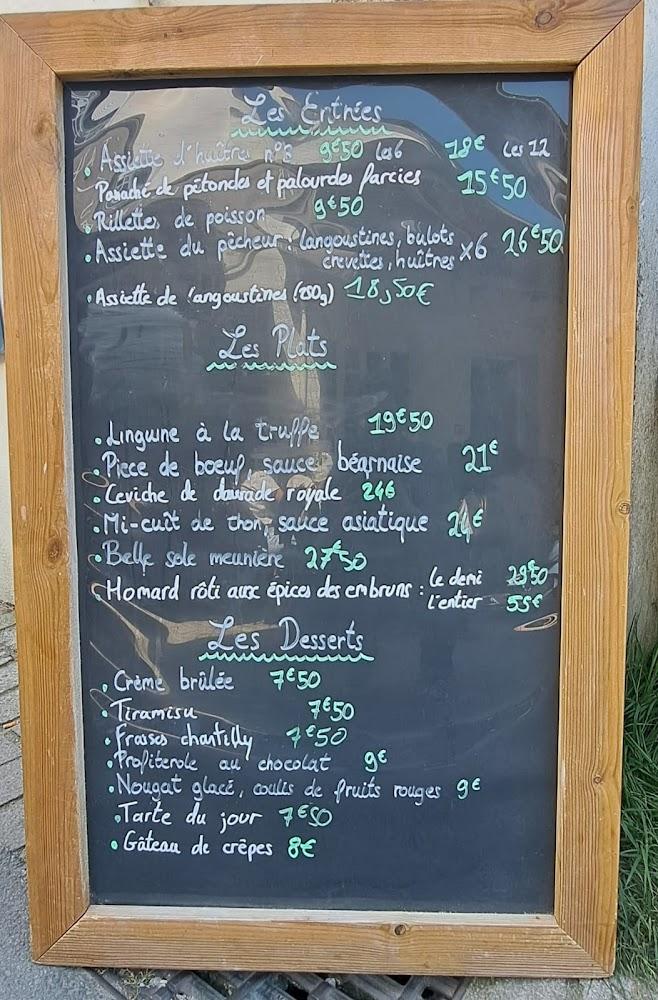 Les Entrées
• Assiette d'huîtres n°3 9€50 les 6 18€ les 12
Panaché de pétoncles et palourdes farcies 15€50
• Rillettes de poisson 9€50
• Assiette du pêcheur : langoustines, bulots
crevettes, huîtres x6 26€50
• Assiette de langoustines (250g) 18,50€
Les Plats
• Linguine à la truffe 19€50
• Piece de boeuf, sauce béarnaise 21€
• Ceviche de daurade royale 24€
• Mi-cuit de thon, sauce asiatique 24€
• Belle sole meunière 27€50
• Homard rôti aux épices des embruns : le demi 29€50
l'entier 55€
Les Desserts
• Crème brûlée 7€50
• Tiramisu 7€50
• Fraises chantilly 7€50
• Profiterole au chocolat 9€
• Nougat glacé, coulis de fruits rouges 9€
• Tarte du jour 7€50
• Gâteau de crêpes 8€